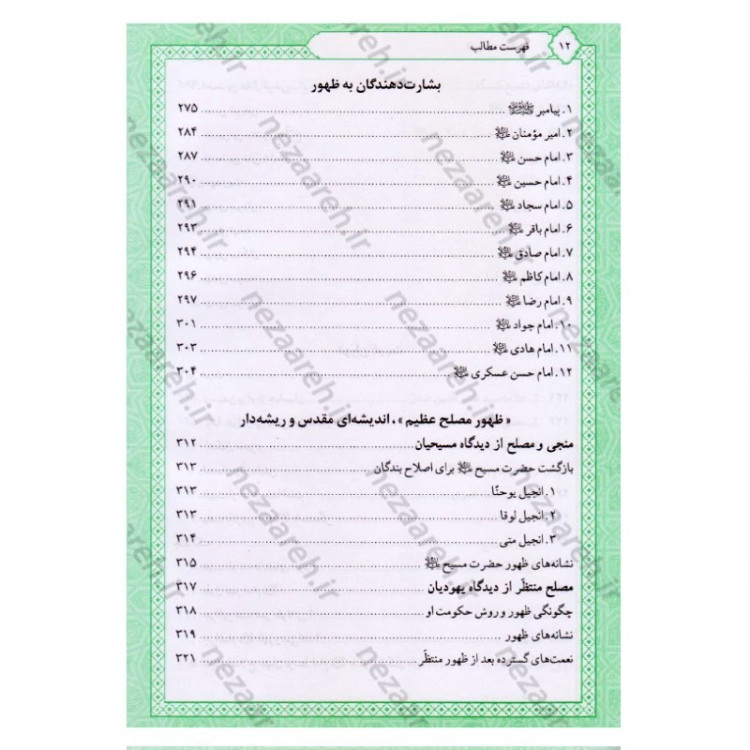 ۱۲
فهرست مطالب
بشارت‌دهندگان به ظهور
۱. پیامبر ﷺ ۲۷۵
۲. امیر مؤمنان ۲۸۴
۳. امام حسن ۲۸۷
۴. امام حسین ۲۹۰
۵. امام سجاد ۲۹۱
۶. امام باقر ۲۹۳
۷. امام صادق ۲۹۴
۸. امام کاظم ۲۹۶
۹. امام رضا ۲۹۷
۱۰. امام جواد ۳۰۱
۱۱. امام هادی ۳۰۳
۱۲. امام حسن عسکری ۳۰۴
«ظهور مصلح عظیم»، اندیشه‌ای مقدس و ریشه‌دار
منجی و مصلح از دیدگاه مسیحیان ۳۱۲
بازگشت حضرت مسیح برای اصلاح بندگان ۳۱۳
۱. انجیل یوحنّا ۳۱۳
۲. انجیل لوقا ۳۱۳
۳. انجیل متی ۳۱۴
نشانه‌های ظهور حضرت مسیح ۳۱۵
مصلح منتظَر از دیدگاه یهودیان ۳۱۷
چگونگی ظهور و روش حکومت او ۳۱۸
نشانه‌های ظهور ۳۱۹
نعمت‌های گسترده بعد از ظهور منتظَر ۳۲۱
nezaareh.ir